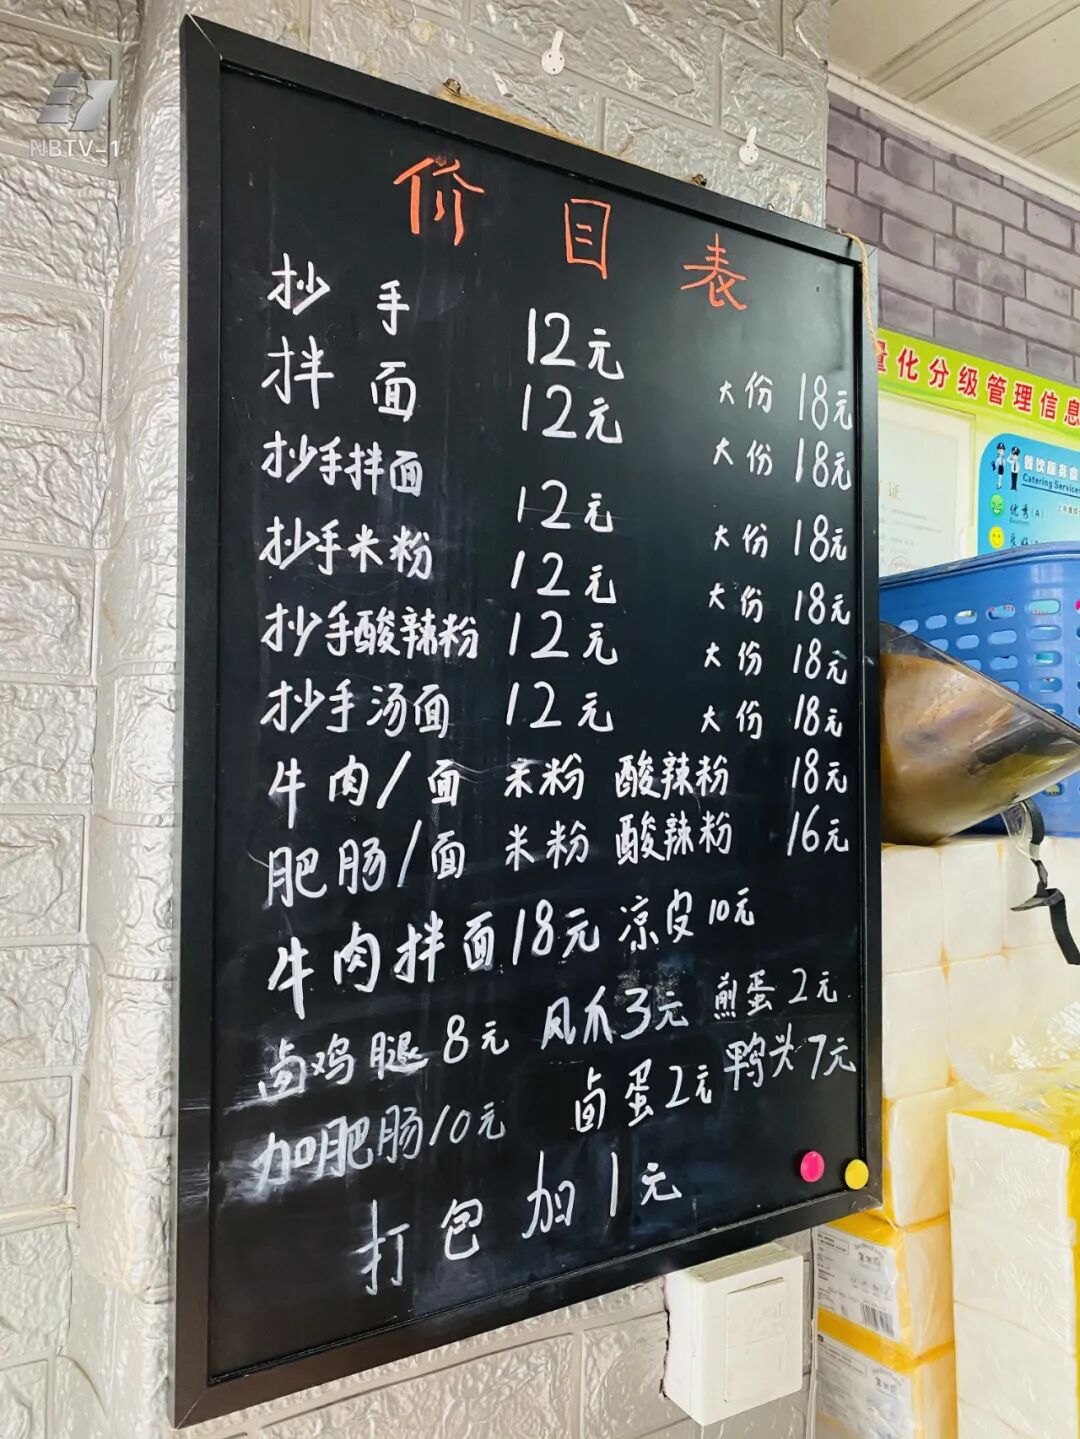 NBTV-1
价目表
抄手 12元 大份 18元
拌面 12元 大份 18元
抄手拌面 12元 大份 18元
抄手米粉 12元 大份 18元
抄手酸辣粉 12元 大份 18元
抄手汤面 12元 大份 18元
牛肉/面 米粉 酸辣粉 18元
肥肠/面 米粉 酸辣粉 16元
牛肉拌面18元 凉皮10元
卤鸡腿8元 凤爪3元 煎蛋2元
加肥肠10元 卤蛋2元 鸭头7元
打包加1元
量化分级管理信息
餐饮服务食
Catering Services
优秀(A)